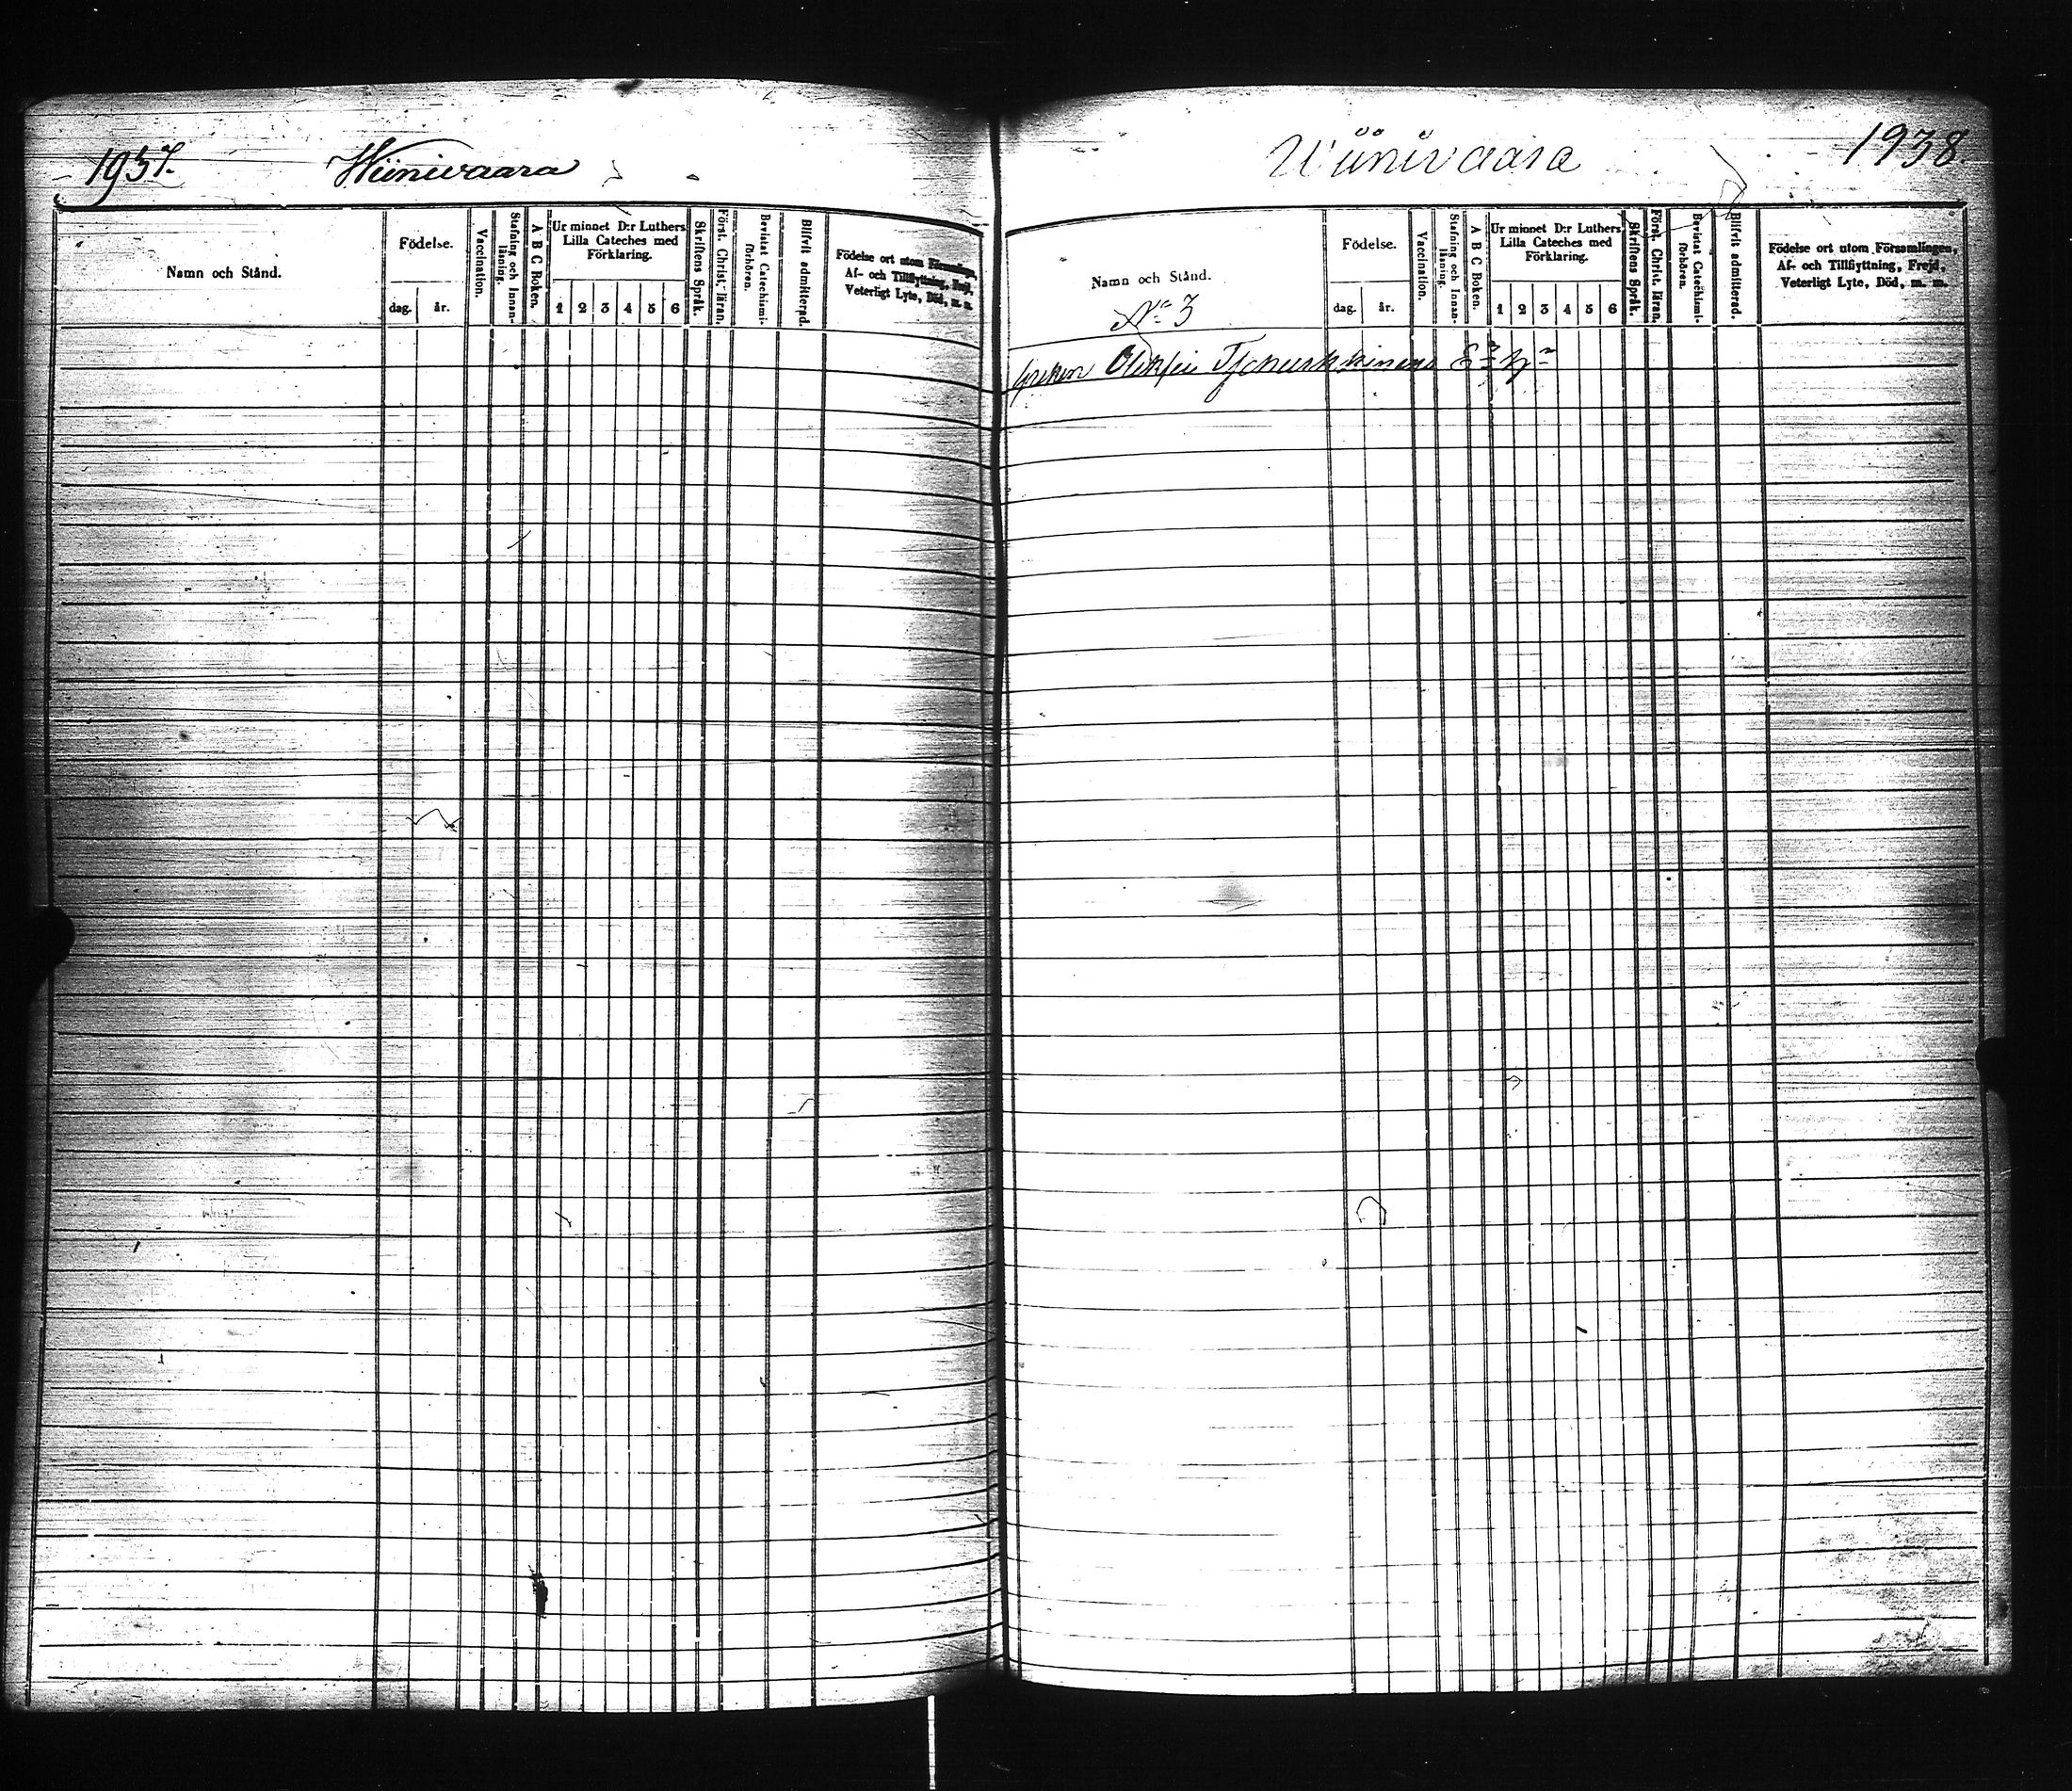 1937. Wiinivaara
Namn och Stånd.
Födelse.
dag. år.
Vaccination.
Stafning och Innanläsning.
A B C Boken.
Ur minnet D:r Luthers Lilla Cateches med Förklaring.
1 2 3 4 5 6
Skriftens Språk.
Först. Christ. läran.
Bevistat Catechismiförhören.
Blifvit admitterad.
Födelse ort utom Församlingen, Af- och Tillflyttning, Frejd, Veterligt Lyte, Död, m. m.
Wiinivaara 1938.
Namn och Stånd.
Födelse.
dag. år.
Vaccination.
Stafning och Innanläsning.
A B C Boken.
Ur minnet D:r Luthers Lilla Cateches med Förklaring.
1 2 3 4 5 6
Skriftens Språk.
Först. Christ. läran.
Bevistat Catechismiförhören.
Blifvit admitterad.
Födelse ort utom Församlingen, Af- och Tillflyttning, Frejd, Veterligt Lyte, Död, m. m.
No 3
Greken Oleksei